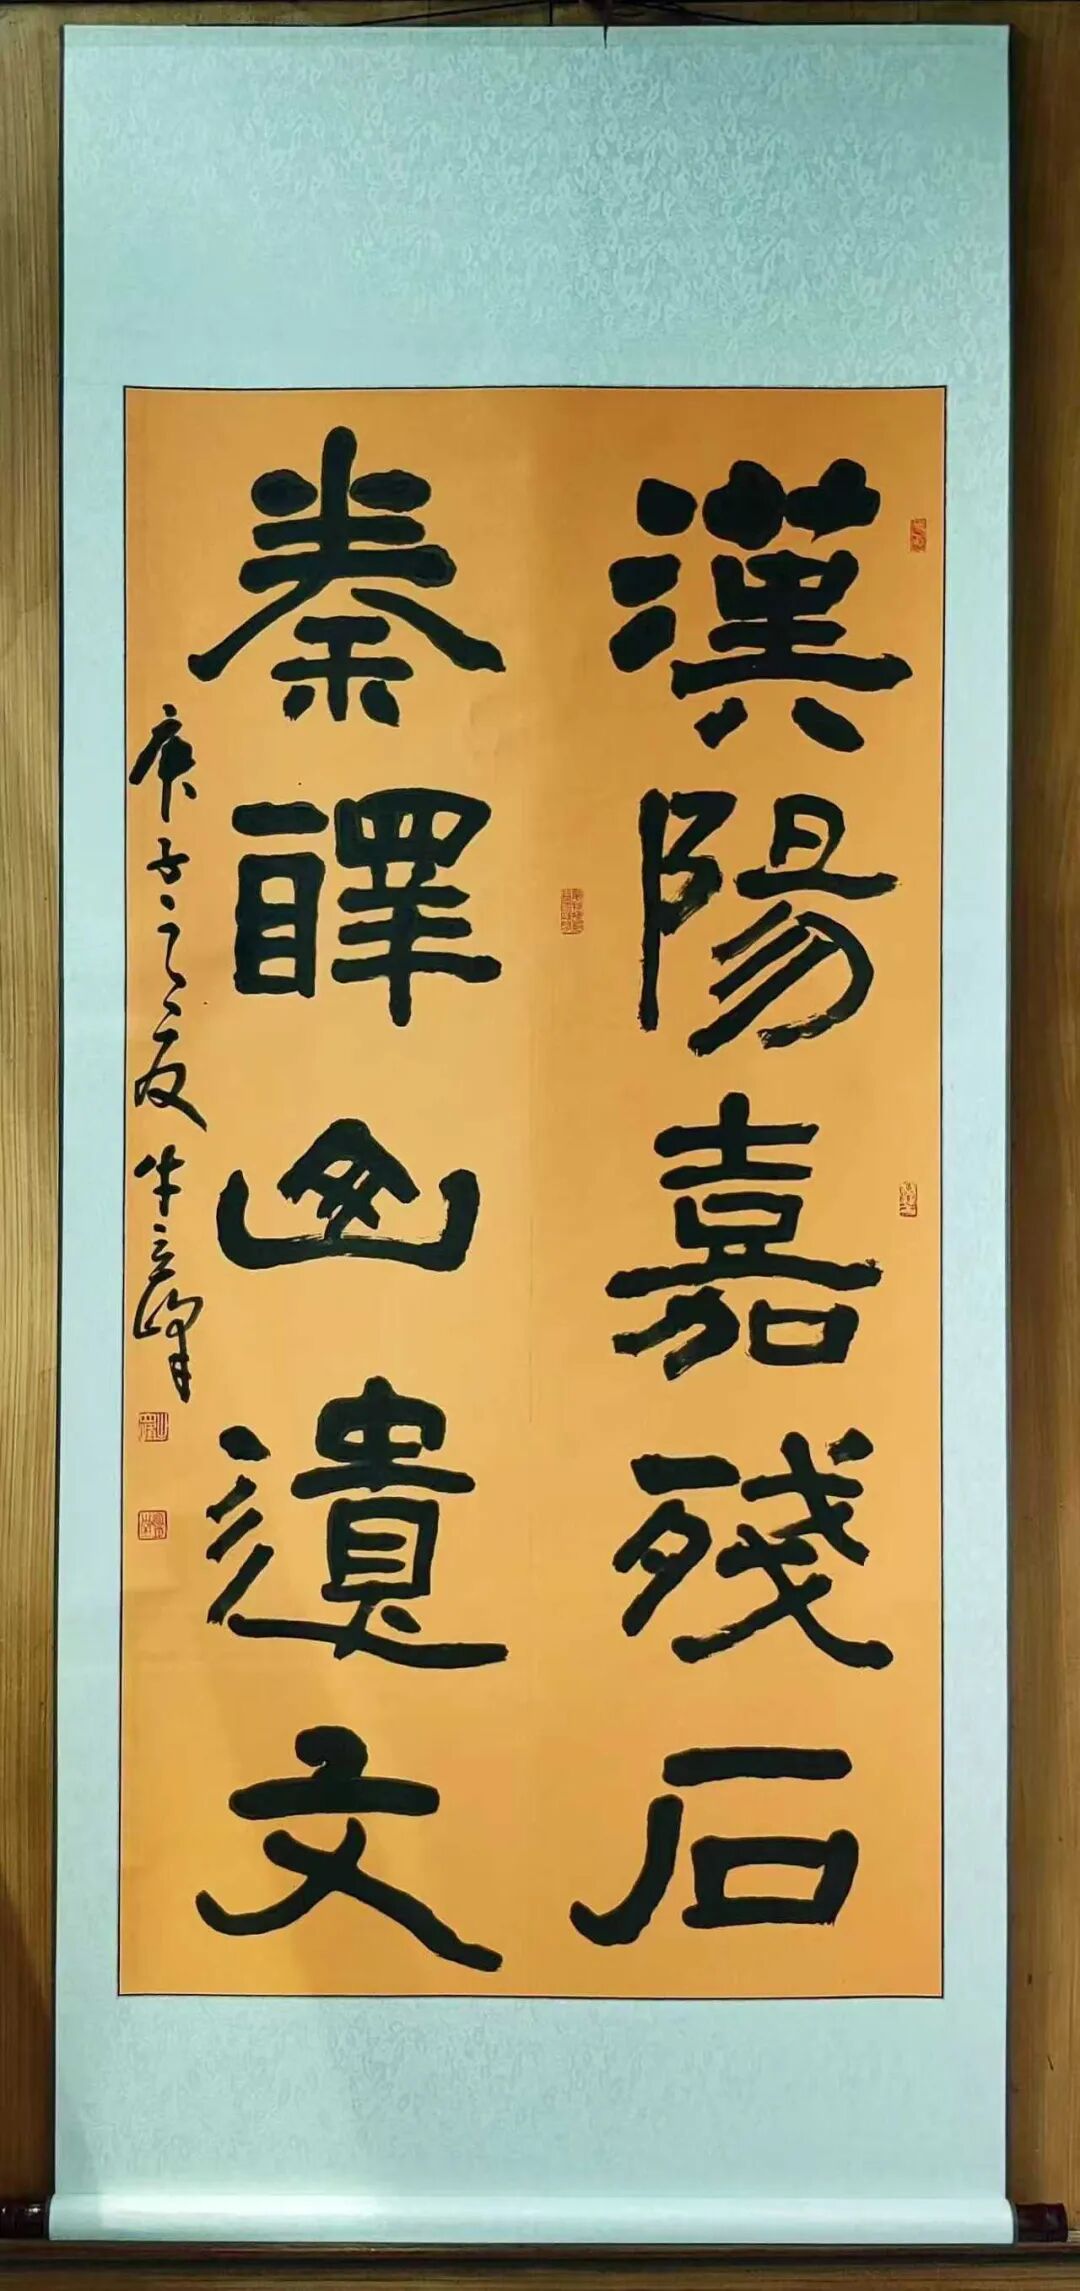 漢陽嘉殘石
秦醳山遺文
庚子之夏牛立峰